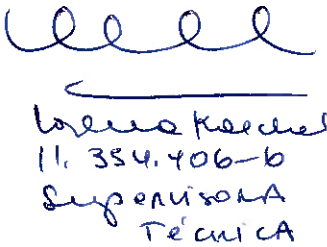 Lorena Kaechel
11. 354.406-6
Supervisora
Técnica